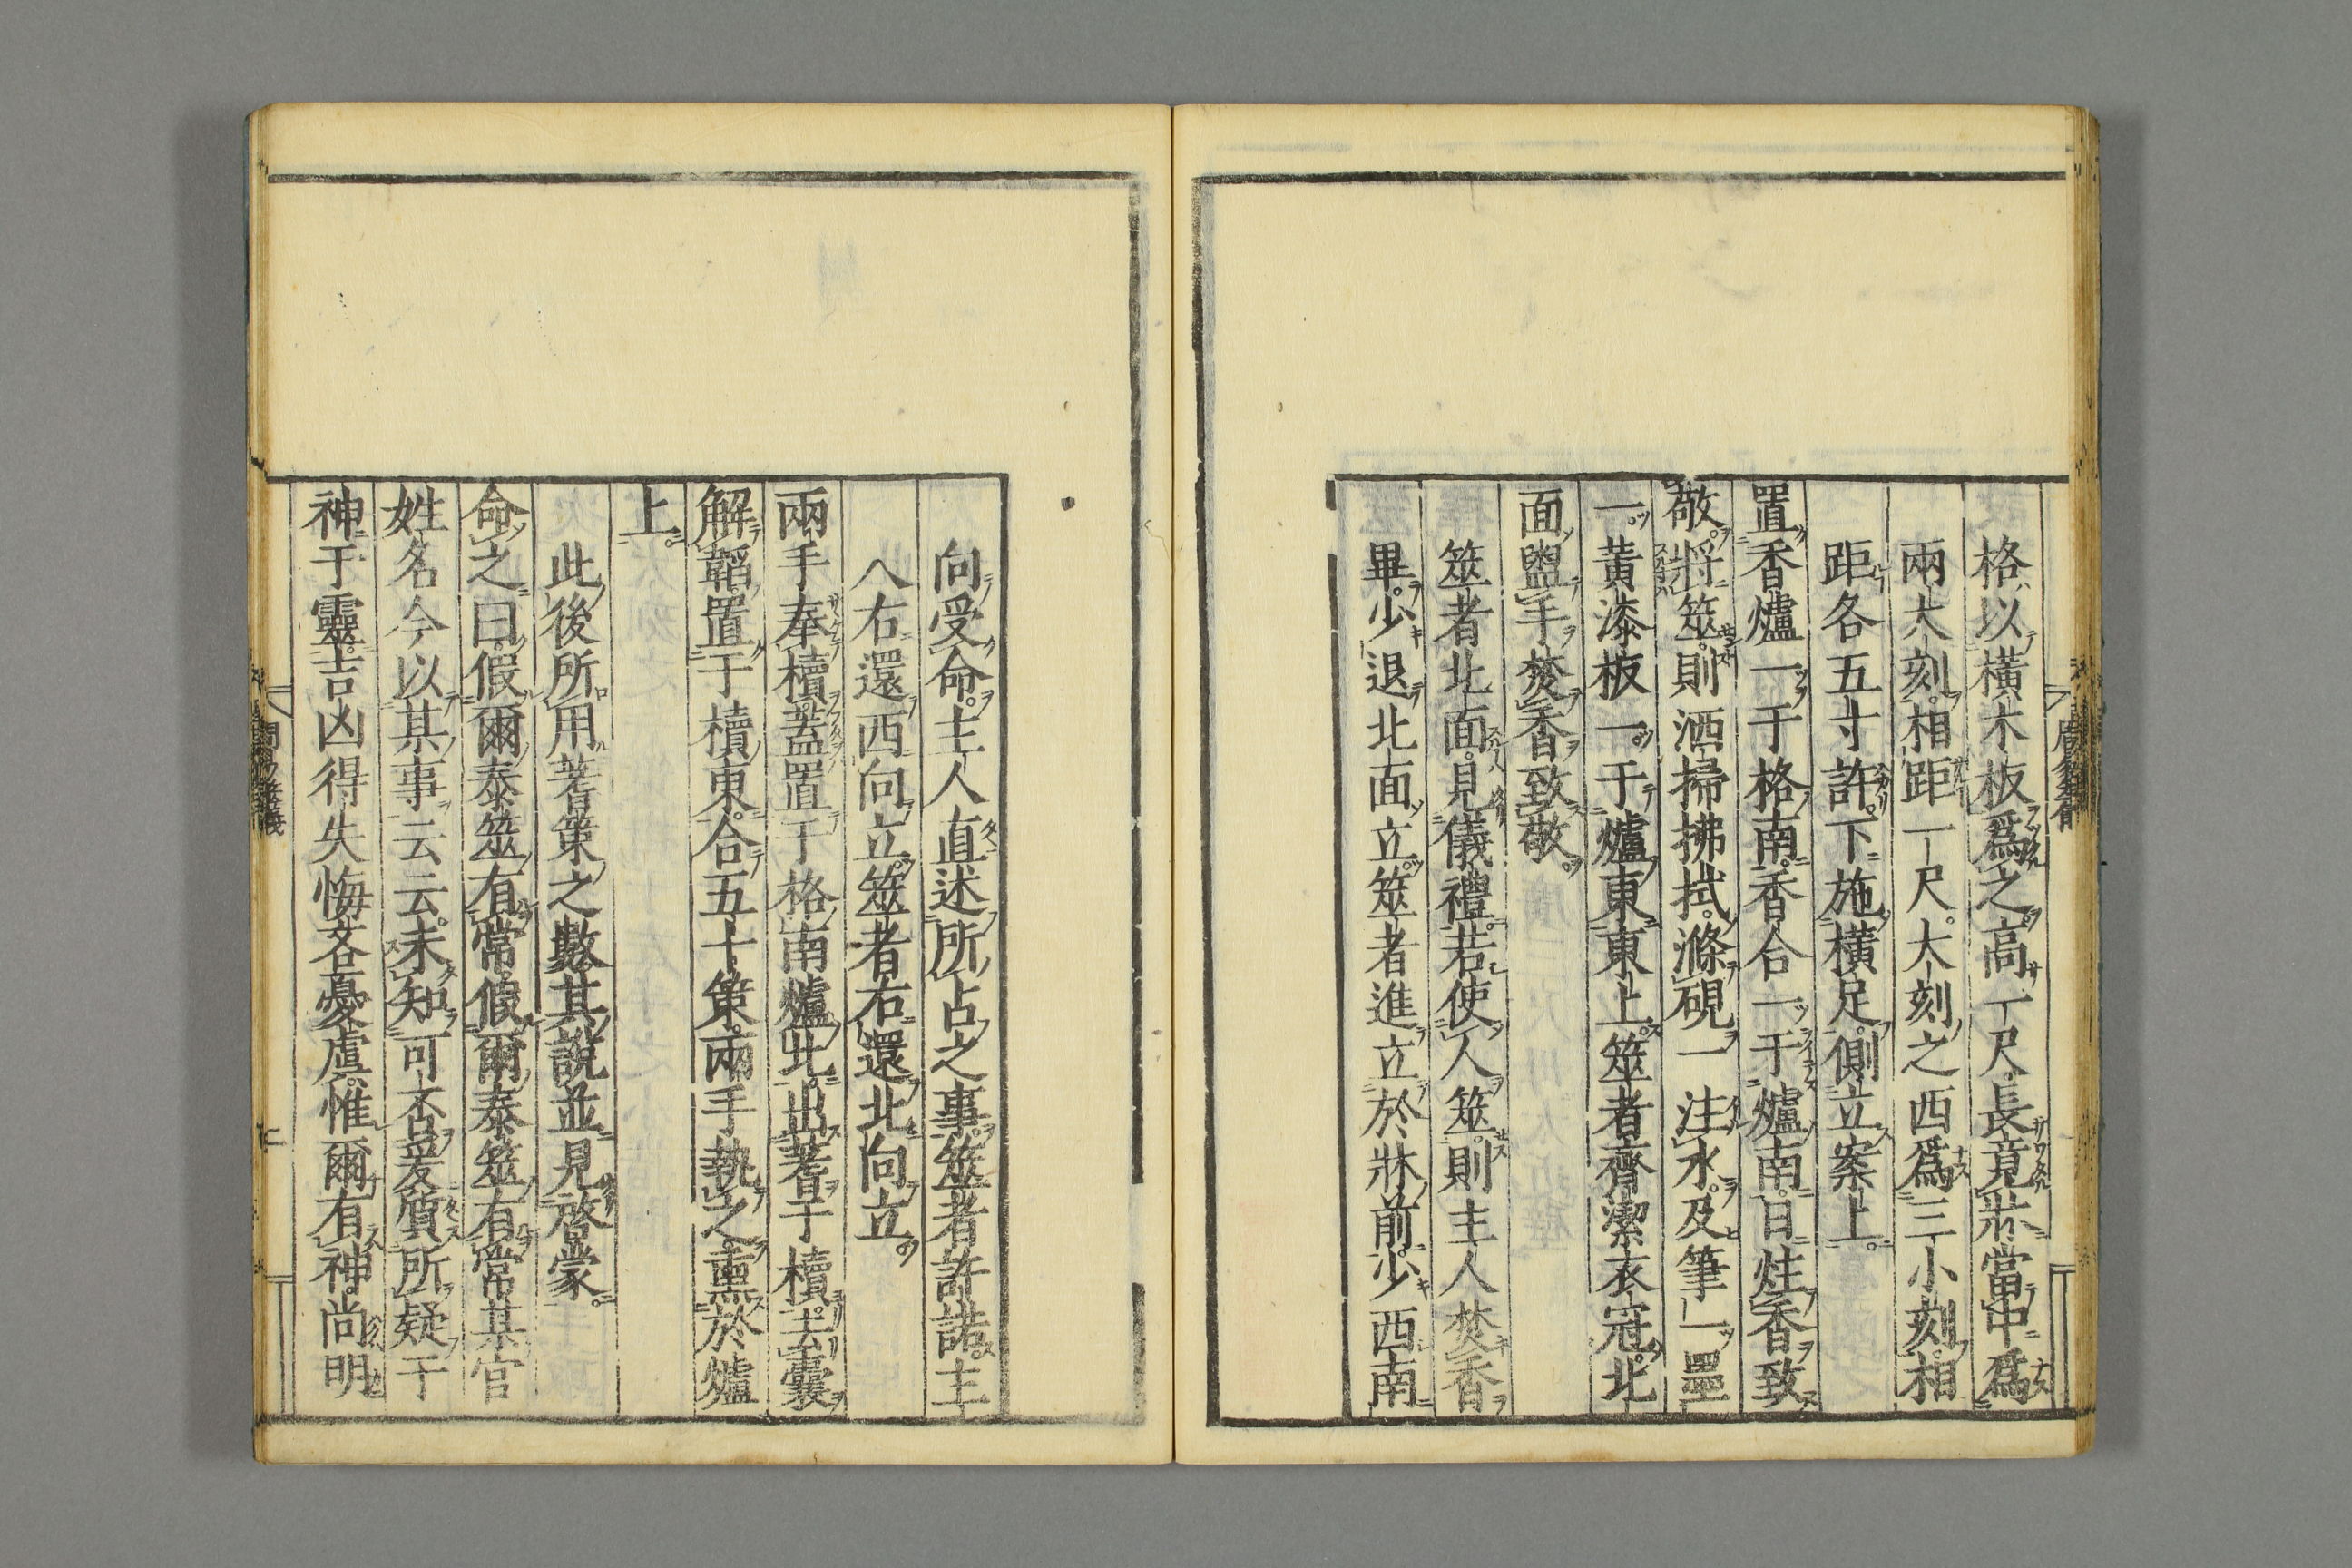 格以横木板爲之高一尺長竟牀當中爲
兩大刻相距一尺大刻之西爲三小刻相
距各五寸許下施横足側立案上
置香爐一于格南香合一于爐南日炷香致
敬將筮則洒掃拂拭滌硯一注水及筆一墨
一黄漆板一于爐東東上筮者齊潔衣冠北
面盥手焚香致敬
筮者北面見儀禮若使人筮則主人焚香
畢少退北面立筮者進立於牀前少西南
向受命主人直述所占之事筮者許諾主
人右還西向立筮者右還北向立
兩手奉櫝蓋置于格南爐北出蓍于櫝去囊
解韜置于櫝東合五十策兩手執之熏於爐
上
此後所用蓍策之數其說並見啓蒙
命之曰假爾泰筮有常假爾泰筮有常某官
姓名今以某事云云未知可否爰質所疑于
神于靈吉凶得失悔吝憂虞惟爾有神尚明